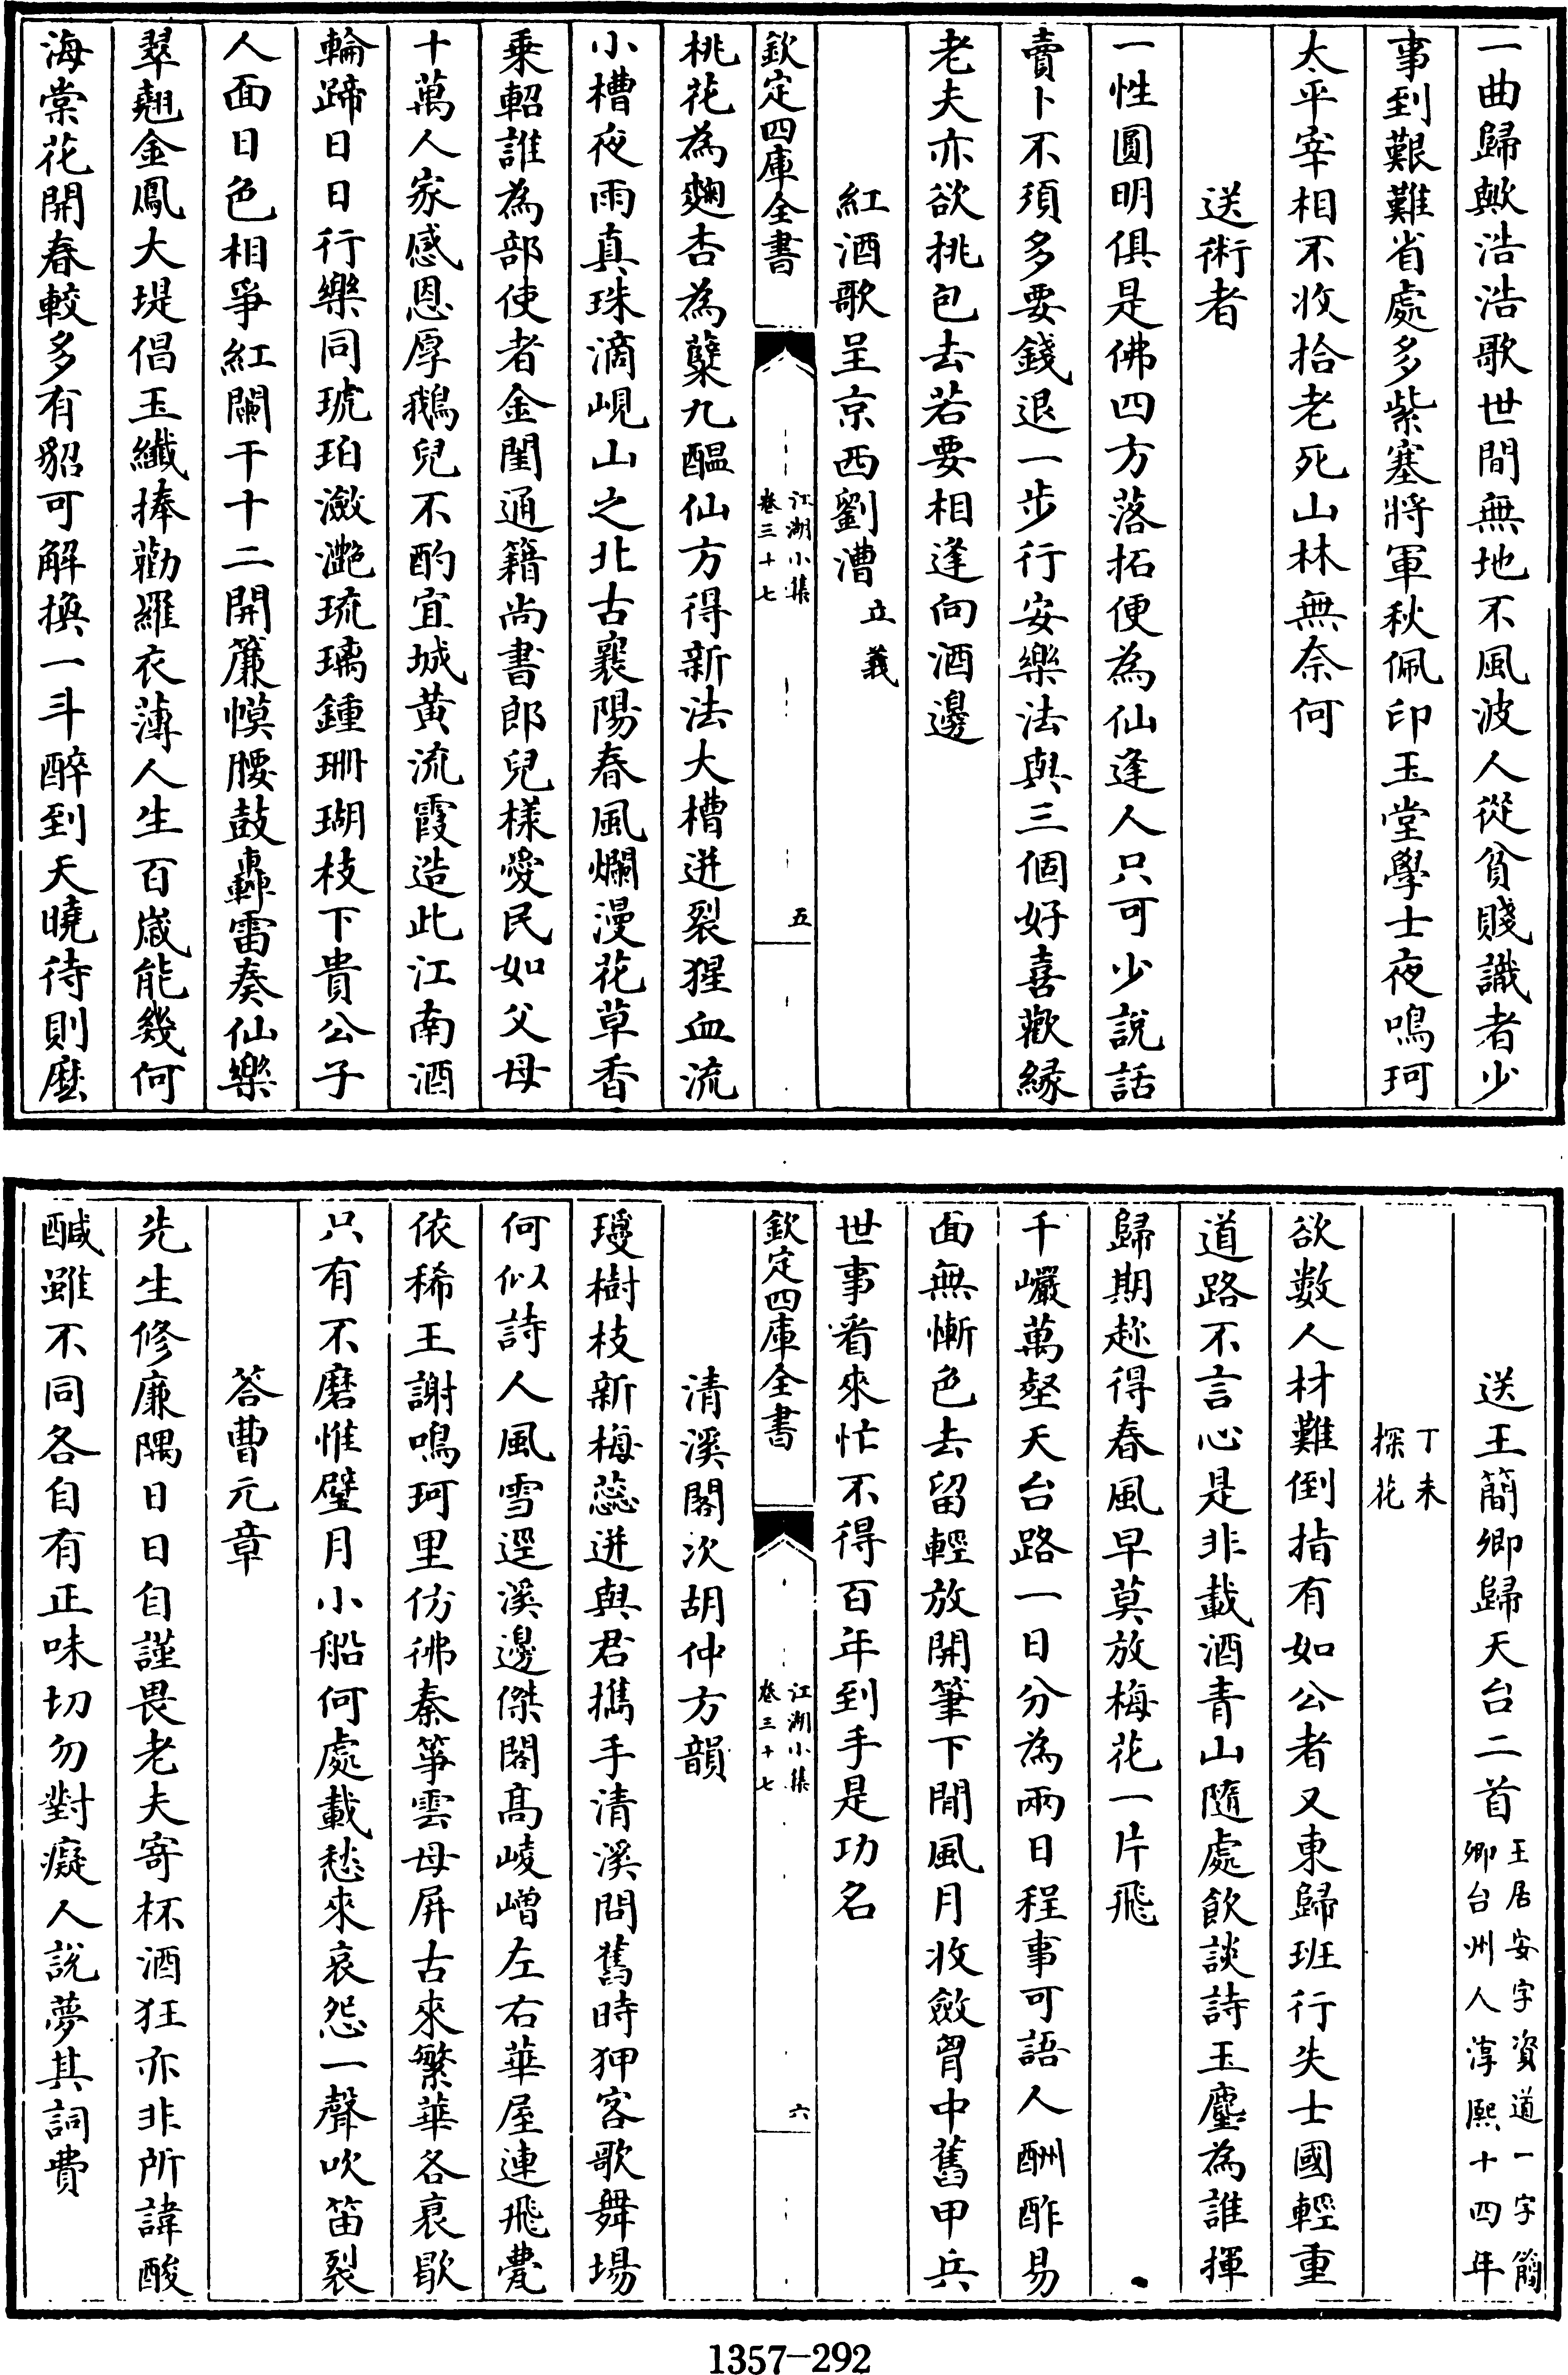 一曲歸歟浩浩歌世間無地不風波人從貧賤識者少
事到艱難省處多紫塞將軍秋佩印玉堂學士夜鳴珂
太平宰相不收拾老死山林無奈何
送術者
一性圓明俱是佛四方落拓便為仙逢人只可少說話
賣卜不須多要錢退一步行安樂法與三個好喜歡緣
老夫亦欲挑包去若要相逢向酒邊
紅酒歌呈京西劉漕立義
欽定四庫全書
江湖小集
卷三十七
五
桃花為麴杏為櫱九醖仙方得新法大槽迸裂猩血流
小槽夜雨真珠滴峴山之北古襄陽春風爛漫花草香
乘軺誰為部使者金閨通籍尚書郎兒樣愛民如父母
十萬人家感恩厚鵝兒不酌宜城黃流霞造此江南酒
輪蹄日日行樂同琥珀瀲灧琉璃鍾珊瑚枝下貴公子
人面日色相爭紅闌干十二開簾幙腰鼓轟雷奏仙樂
翠翹金鳳大堤倡玉纖捧勸羅衣薄人生百歲能幾何
海棠花開春較多有貂可解換一斗醉到天曉待則麽
送王簡卿歸天台二首
王居安字資道一字簡
卿台州人淳熙十四年
丁未
探花
欲數人材難倒指有如公者又東歸班行失士國輕重
道路不言心是非載酒青山隨處飲談詩玉麈為誰揮
歸期趂得春風早莫放梅花一片飛
千巖萬壑天台路一日分為兩日程事可語人酬酢易
面無慚色去留輕放開筆下閒風月收斂胷中舊甲兵
世事看來忙不得百年到手是功名
欽定四庫全書
江湖小集
卷三十七
六
清溪閣次胡仲方韻
璦樹枝新梅蕊迸與君攜手清溪問舊時狎客歌舞場
何似詩人風雪逕溪邊傑閣高崚嶒左右華屋連飛甍
依稀王謝鳴珂里仿彿秦箏雲母屏古來繁華各衰歇
只有不磨惟壁月小船何處載愁來哀怨一聲吹笛裂
答曹元章
先生修廉隅日日自謹畏老夫寄杯酒狂亦非所諱酸
醎雖不同各自有正味切勿對癡人說夢其詞費
1357-292